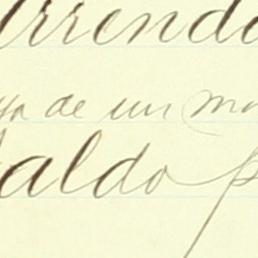 Arrenda
ya de un mo
aldo p